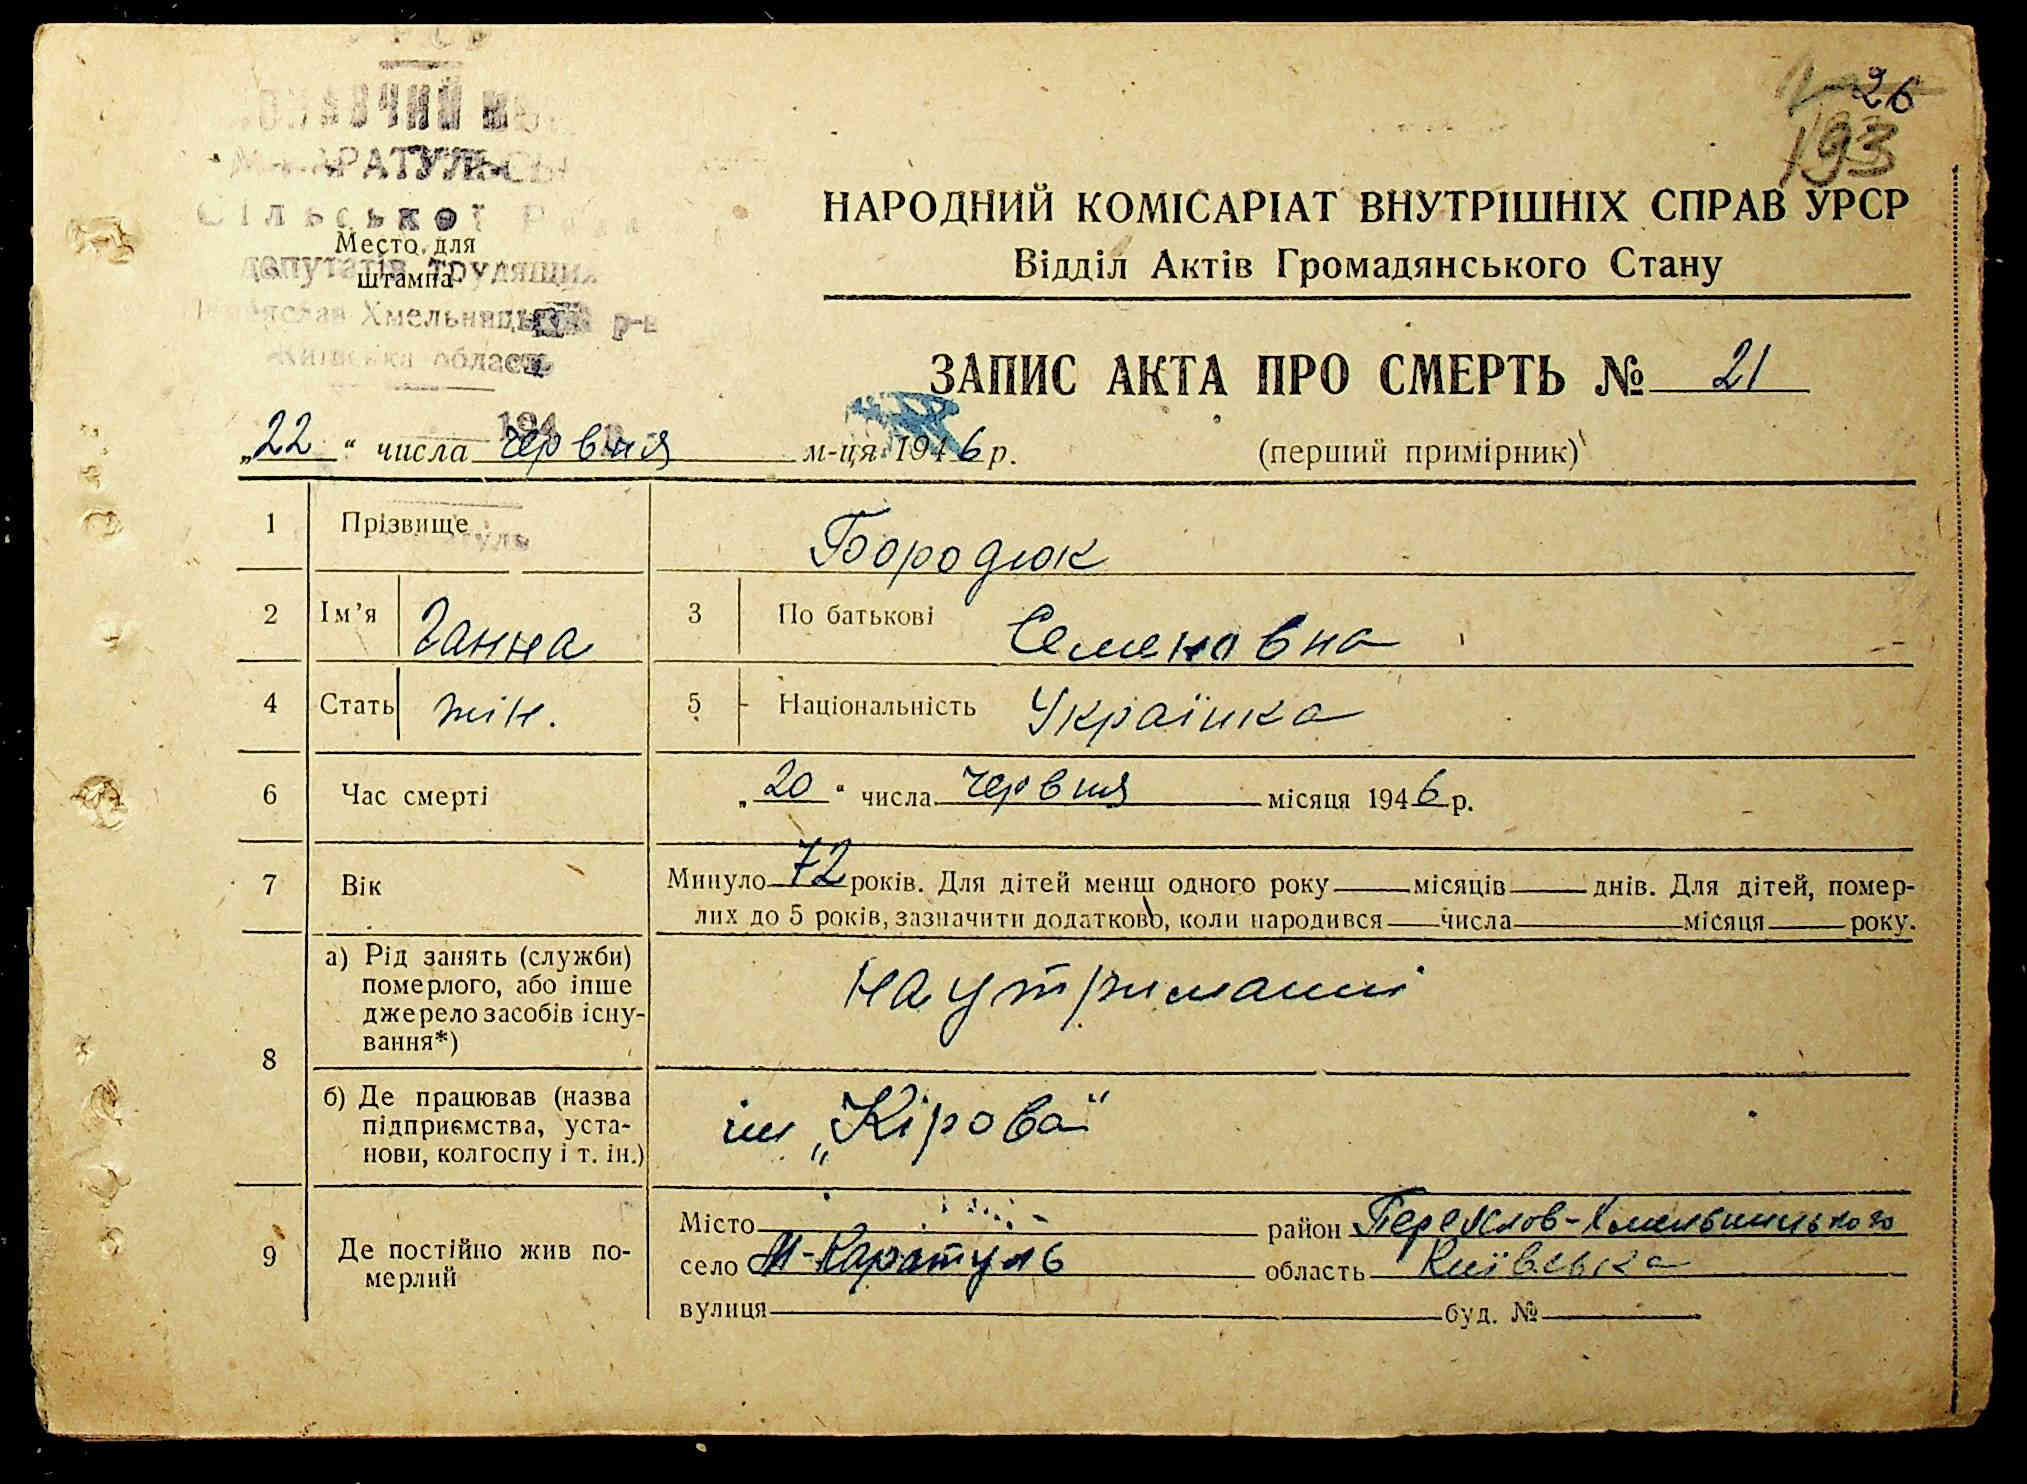 26
193
М-КАРАТУЛЬСЬ
Сільської Ради
депутатів трудящих
Переяслав Хмельницький р-н
Київська область
194 р.
Место для
штампа
НАРОДНИЙ КОМІСАРІАТ ВНУТРІШНІХ СПРАВ УРСР
Відділ Актів Громадянського Стану
ЗАПИС АКТА ПРО СМЕРТЬ № 21
„22“ числа червня м-ця 1946 р. (перший примірник)
1 Прізвище Бородюк
2 Ім’я Ганна 3 По батькові Семеновна
4 Стать жін. 5 Національність Українка
6 Час смерті „20“ числа червня місяця 1946 р.
7 Вік Минуло 72 років. Для дітей менш одного року місяців днів. Для дітей, помер-
лих до 5 років, зазначити додатково, коли народився числа місяця року.
8 а) Рід занять (служби)
померлого, або інше
джерело засобів існу-
вання*)
на утриманні
б) Де працював (назва
підприємства, уста-
нови, колгоспу і т. ін.)
ім „Кірова“
9 Де постійно жив по-
мерлий
Місто район Переяслов-Хмельницького
село М-Каратуль область Київська
вулиця буд. №